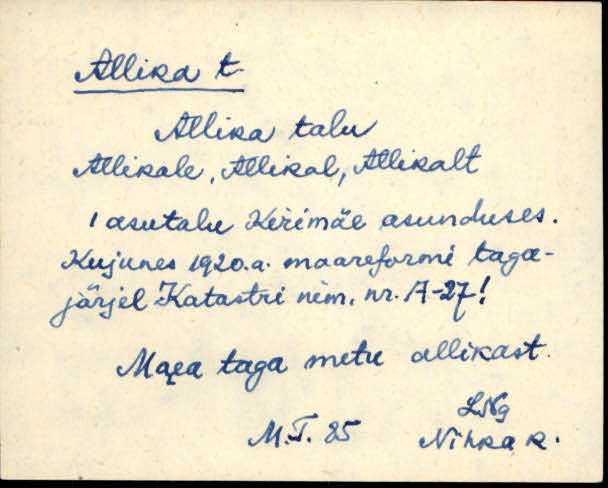 Allika t.
Allika talu
Allikale, Allikal, Allikalt
1 asutalu Kerimäe asunduses.
Kujunes 1920.a. maareformi taga-
järjel Katastri nim. nr. A-27!
Maea taga metu allikast.
LNg
M.T. 85 Nihka k.